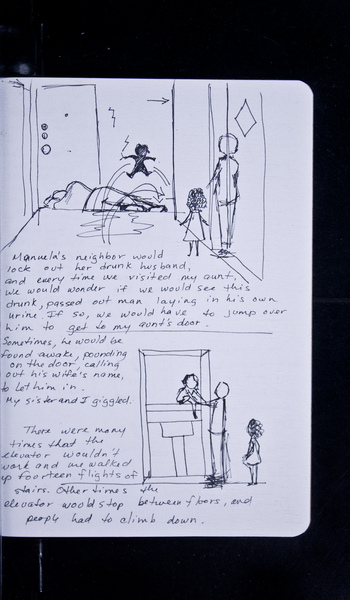 Manuela's neighbor would
lock out her drunk husband,
and every time we visited my aunt,
we would wonder if we would see this
drunk, passed out man laying in his own
urine. If so, we would have to jump over
him to get to my aunt's door.
Sometimes, he would be
found awake, pounding
on the door, calling
out his wife's name,
to let him in.
My sister and I giggled.
There were many
times that the
elevator wouldn't
work and we walked
up fourteen flights of
stairs. Other times the
elevator would stop between floors, and
people had to climb down.